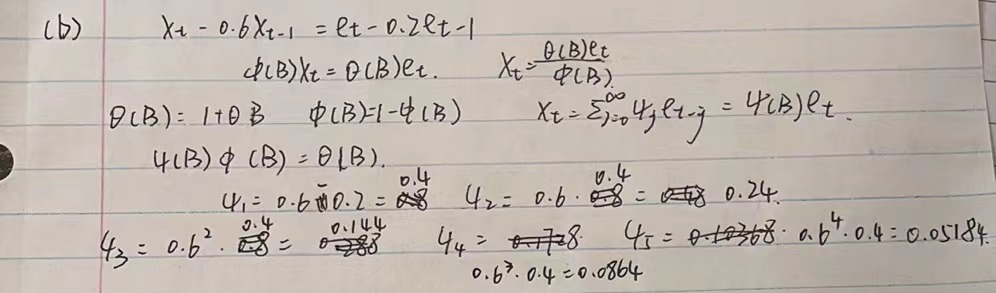 (b) Xt - 0.6Xt-1 = et - 0.2et-1
ϕ(B)Xt = θ(B)et. Xt = θ(B)et / ϕ(B).
θ(B) = 1+θB ϕ(B)=1-ϕ(B) Xt = Σj=0^∞ Ψj et-j = Ψ(B)et.
Ψ(B)ϕ(B) = θ(B).
Ψ1 = 0.6-0.2 = 0.4 Ψ2 = 0.6 · 0.4 = 0.24.
Ψ3 = 0.6^2 · 0.4 = 0.144 Ψ4 = Ψ5 = 0.6^4 · 0.4 = 0.05184.
0.6^3 · 0.4 = 0.0864